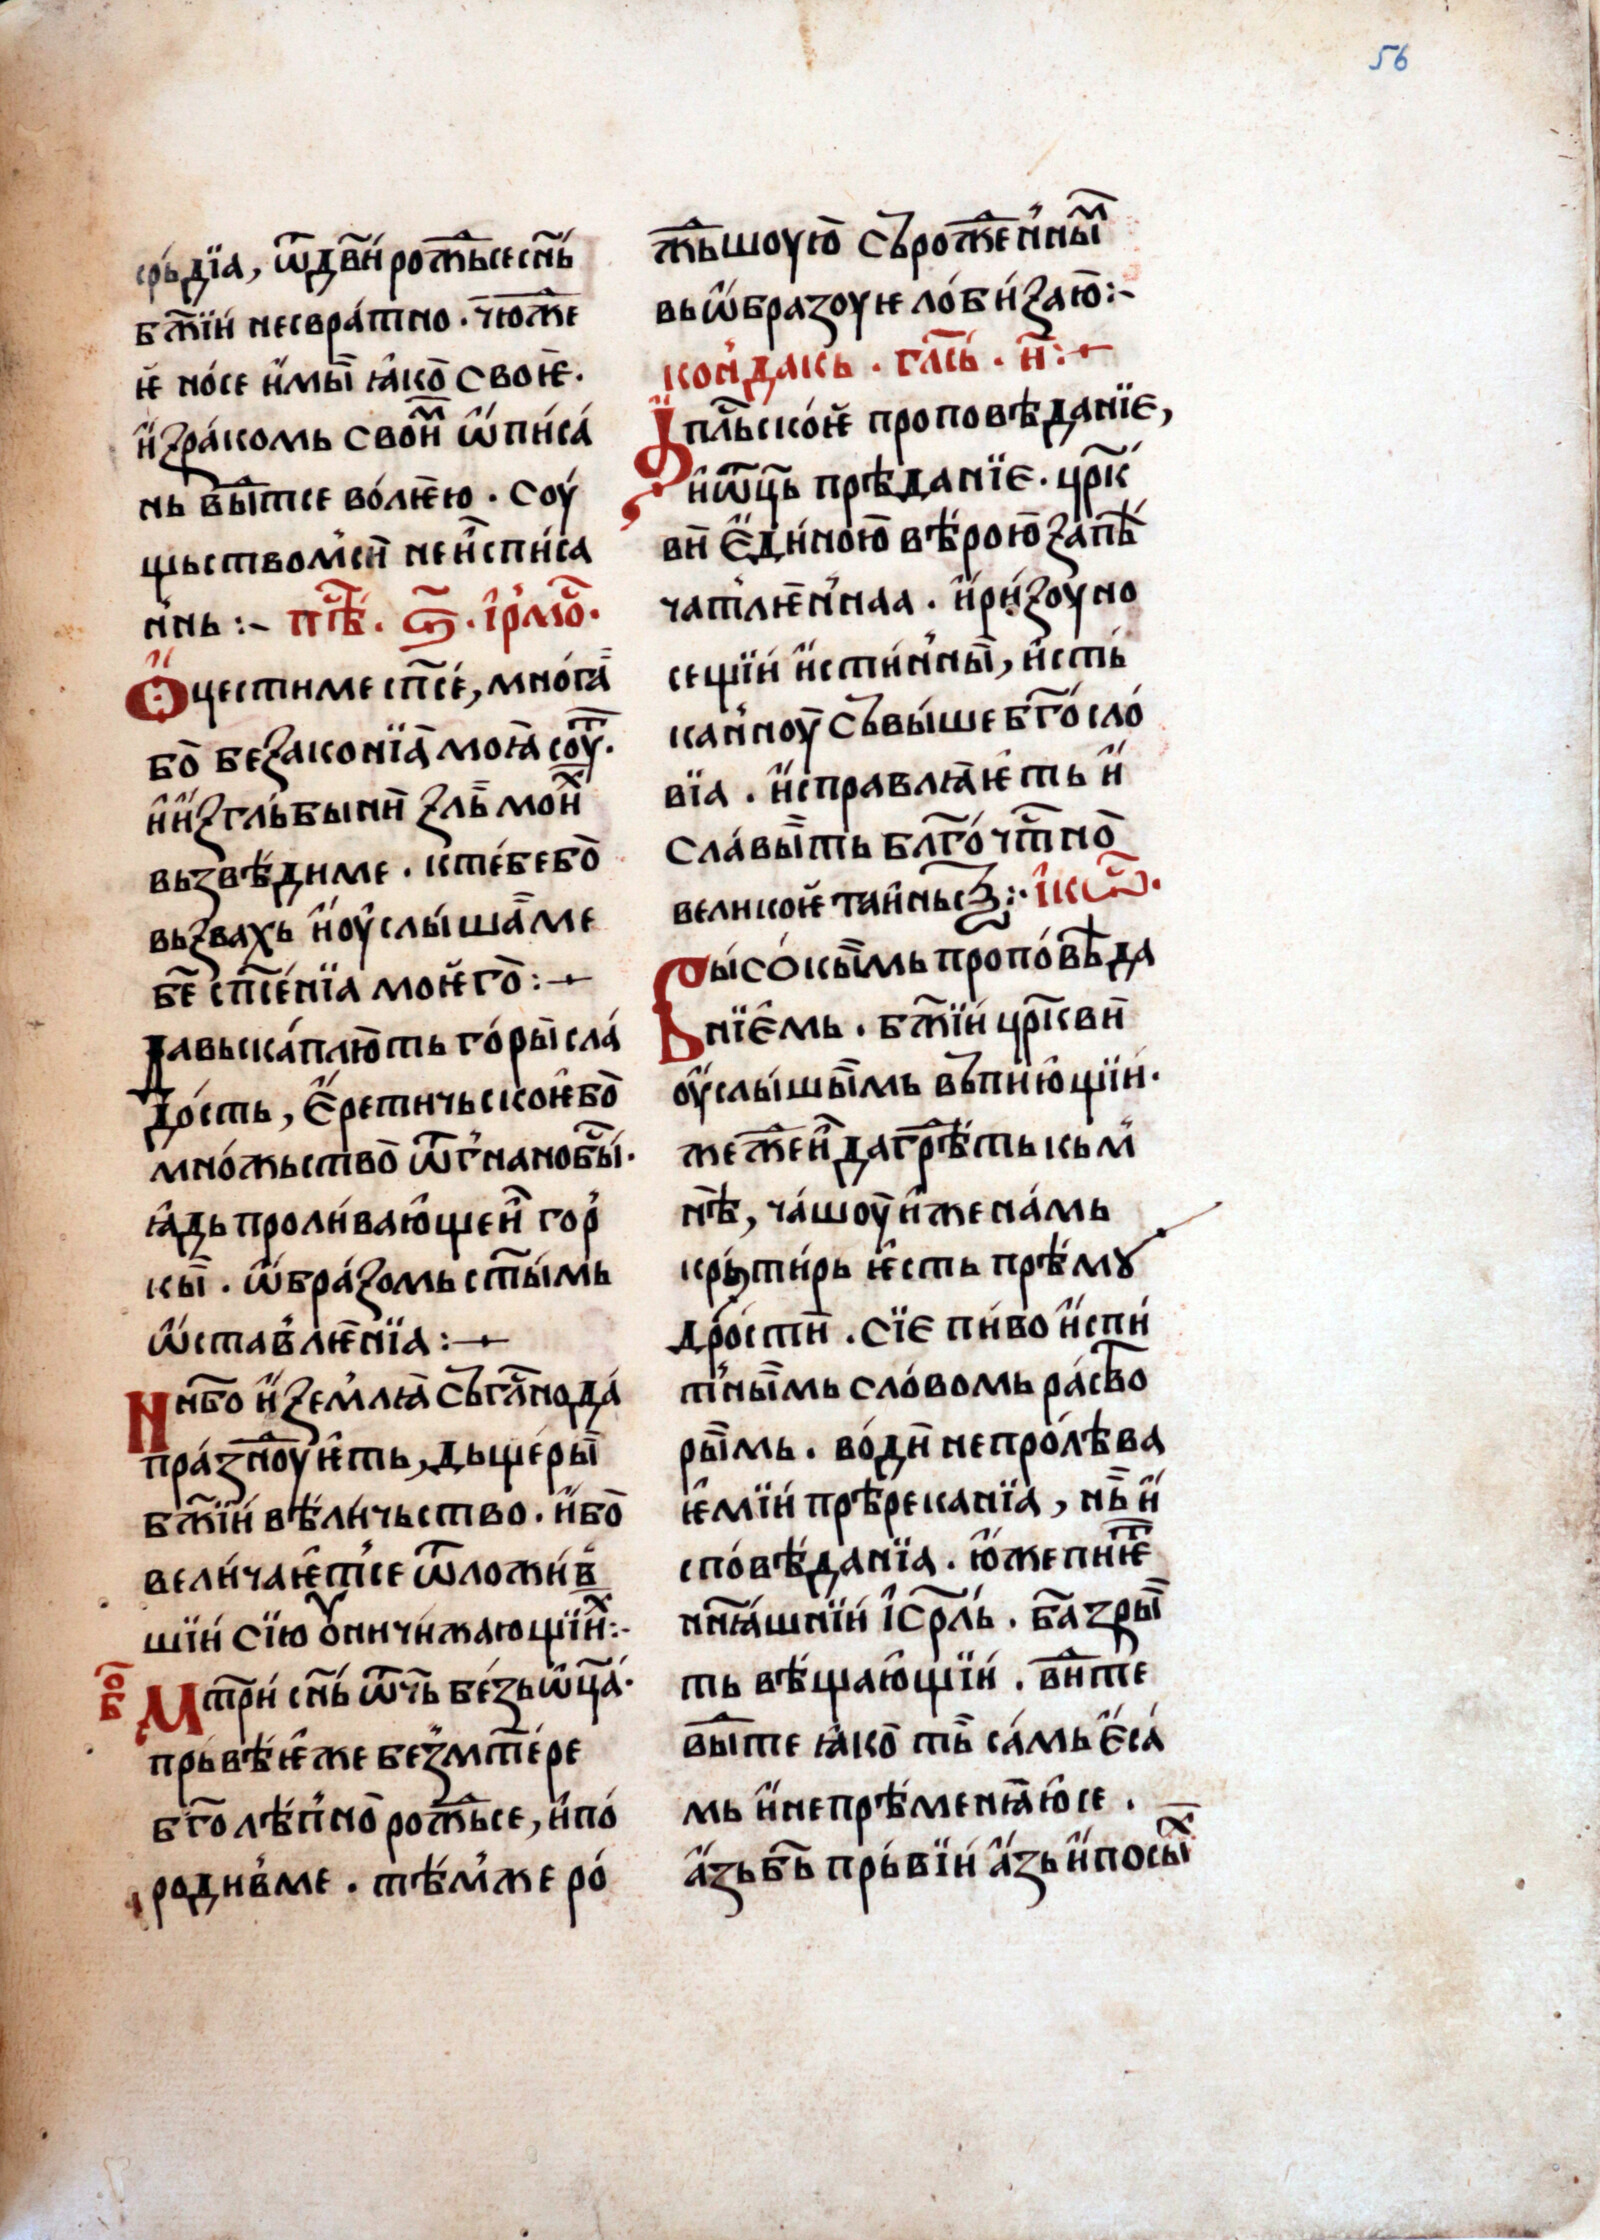 56
срьдїа, ѿдв҃и рож҃ьсе сн҃ь
бж҃їи несвратно. чюже
ѥ носе имы ꙗко своѥ.
изракомь свои᷀ ѡписа
нь бытсе волѥю. соу
щьством сы неиспⷭиса
ннь:~ пⷭѣ. ѕ҃. ірмоⷭ.
Оцестиме сп҃се, многаа
бо безаконїа моꙗ соуⷮ.
и изгльбыни зль моиⷯ
вьзведиме. ктебебо
вьзвахь и оуслышаме
бе҃ сп҃сенїа моѥго:~
Давьскаплють горы сла
дость, єретичьскоѥбо
множьство ѿгнанобыⷭ.
ꙗдь проливающеи гор
кы. ѡбразомь ст҃ымь
ѡставлѥнїа:~
Нн҃бо и землꙗ сьглⷭанода
празноуѥть, дьщеры
бж҃їи вѣличьство. ибо
величаѥтсе ѿложив
шїи сїю оуничижающїиⷯ:~
бо҃
Мт҃ри сн҃ь ѿч҃ь безьѡц҃а.
прьвѣѥже безмт҃ере
бг҃олѣпно рож҃ьсе, ипо
родивме. тѣмже ро
ж҃ьшоую сьрожен'ныⷨ
вьѡбразоу ѥ лобизаю:~
кондакь. глⷭь. и҃:~
Іпⷭльскоѥ проповѣданїе,
иѿць прѣданїе. црⷦ
ви єдиною вѣрою запⷱѣ
чатлѥннаа. иризоуно
сещїи истинны, исть
канноу сьвыше бг҃осло
вїа. исправлꙗѥть и
славыть бл҃гочⷭтно
великоѥ таиньство:· ікоⷭ.
Высокымь проповѣда
нїемь. бж҃їи црⷦви
оуслышымь вьпиющїи.
жежеи да грⷣѣть кьм
нѣ, чашоу иже намь
крьтирь ѥсть прѣмꙋ
дрости. сїе пиво испи
тнымь словомь растⷡо
рымь. води непролѣва
ѥмїи прѣреканїа, нь и
сповѣданїа. юже пиѥⷮ
нинꙗшнїи ісрл҃ь. ба҃ зры
ть вѣщающїи. вите
выте ꙗко ть самь єса
мь и непрѣменꙗюсе.
азь б҃ь прьвїи азь и посыⷯ